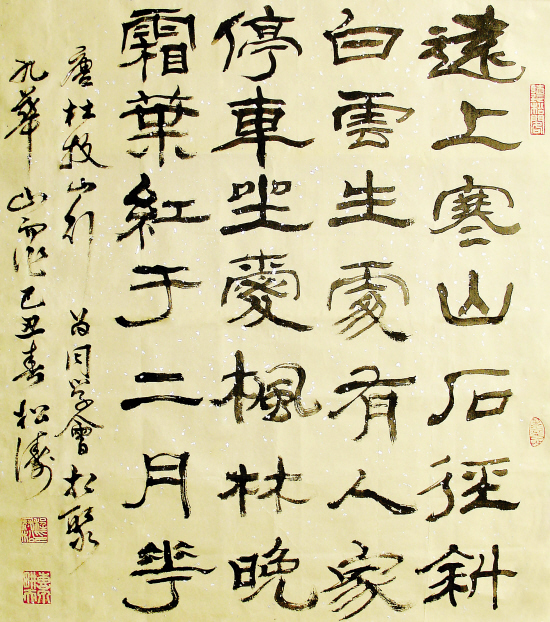 遠上寒山石徑斜
白雲生處有人家
停車坐愛楓林晚
霜葉紅于二月花
唐杜牧山行 為同學會相聚
九華山而作 己丑春松濤